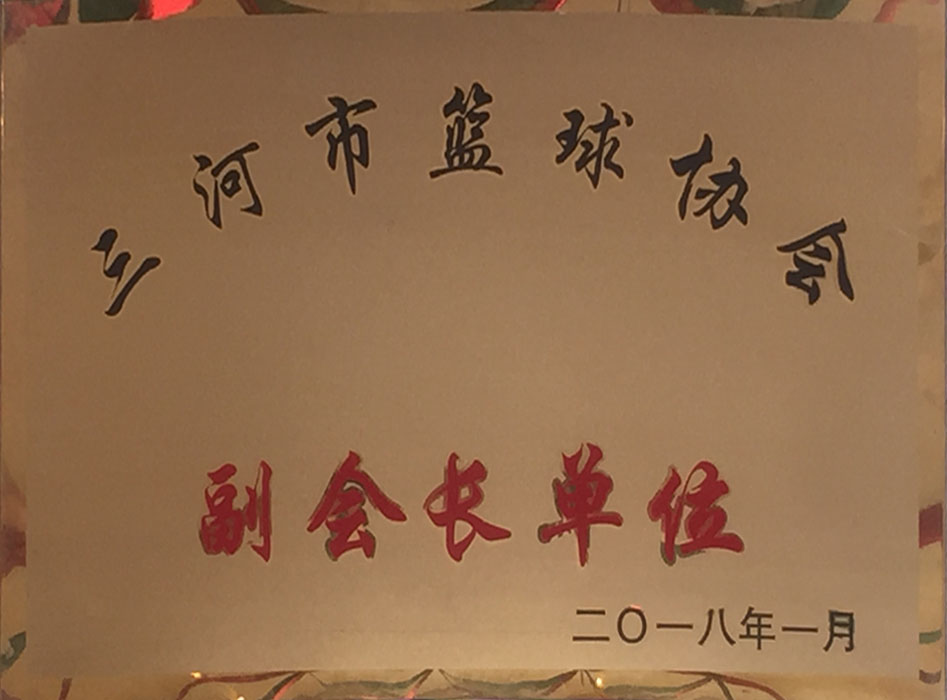 三河市篮球协会
副会长单位
二〇一八年一月